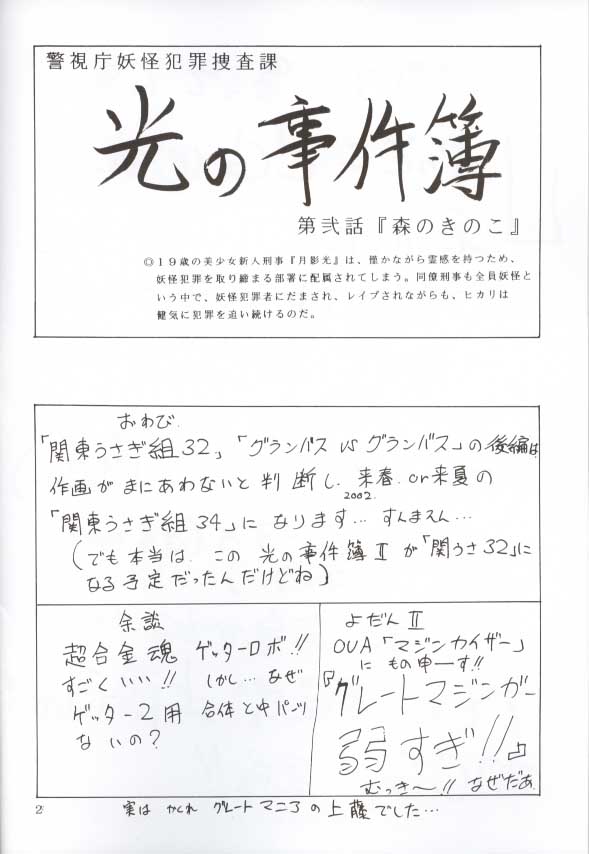 警視庁妖怪犯罪捜査課
光の事件簿
第弐話『森のきのこ』
◎19歳の美少女新人刑事『月影光』は、僅かながら霊感を持つため、
妖怪犯罪を取り締まる部署に配属されてしまう。同僚刑事も全員妖怪と
いう中で、妖怪犯罪者にだまされ、レイプされながらも、ヒカリは
健気に犯罪を追い続けるのだ。
おわび
「関東うさぎ組32」「グランバス VS グランバス」の後編は
作画がまにあわないと判断し、来春 or 来夏の
2002.
「関東うさぎ組34」に なります… すんまえん…
(でも本当は、この 光の事件簿Ⅱ が「関うさ32」に
なる予定だったんだけどね)
余談
超合金魂 ゲッターロボ!!
すごくいい!! しかし… なぜ
ゲッター2用 合体と中パーツ
ないの?
よだんⅡ
OVA「マジンカイザー」
に もの申ーす!!
『グレートマジンガー
弱すぎ!!』
むっき〜!! なぜだぁ
2
実は かくれ グレートマニアの上藤でした…